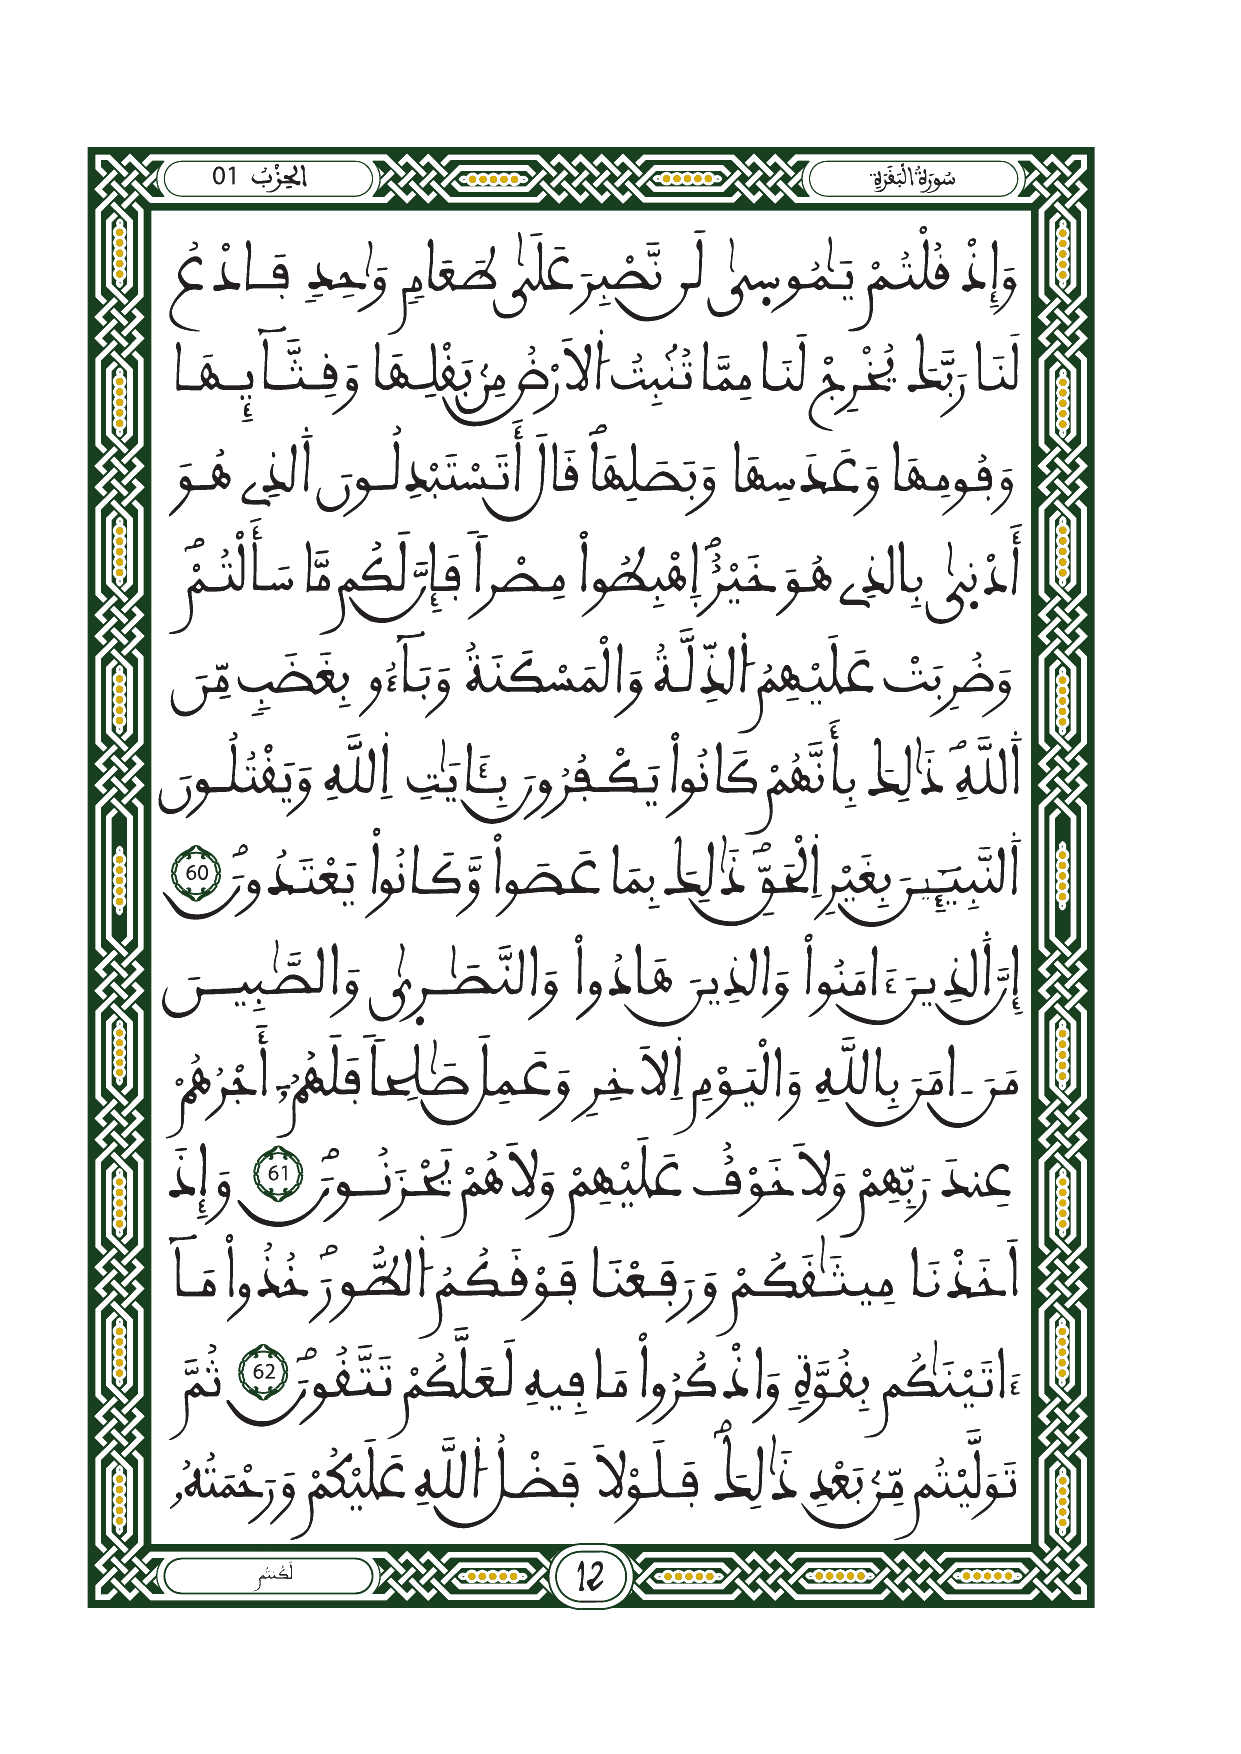 سُورَةُ الْبَقَرَةِ
الحِزْبُ 01
وَإِذْ قُلْتُمْ يَٰمُوسٜىٰ لَن نَّصْبِرَ عَلَىٰ طَعَامٖ وَٰحِدٖ فَادْعُ
لَنَا رَبَّكَ يُخْرِجْ لَنَا مِمَّا تُنۢبِتُ اُ۬لَارْضُ مِنۢ بَقْلِهَا وَقِثَّآئِهَا
وَفُومِهَا وَعَدَسِهَا وَبَصَلِهَاۖ قَالَ أَتَسْتَبْدِلُونَ اَ۬لذِے هُوَ
أَدْنٜىٰ بِالذِے هُوَ خَيْرٌۖ اِهْبِطُواْ مِصْراٗ فَإِنَّ لَكُم مَّا سَأَلْتُمْۖ
وَضُرِبَتْ عَلَيْهِمُ اُ۬لذِّلَّةُ وَالْمَسْكَنَةُ وَبَآءُو بِغَضَبٖ مِّنَ
اَ۬للَّهِۖ ذَٰلِكَ بِأَنَّهُمْ كَانُواْ يَكْفُرُونَ بِـَٔايَٰتِ اِ۬للَّهِ وَيَقْتُلُونَ
اَ۬لنَّبِيٓـِٕينَ بِغَيْرِ اِ۬لْحَقِّۖ ذَٰلِكَ بِمَا عَصَواْ وَّكَانُواْ يَعْتَدُونَۖ 60
إِنَّ اَ۬لذِينَ ءَامَنُواْ وَالذِينَ هَادُواْ وَالنَّصَٰرٜىٰ وَالصَّٰبِينَ
مَنَ ـ امَنَ بِاللَّهِ وَالْيَوْمِ اِ۬لَاخِرِ وَعَمِلَ صَٰلِحاٗ فَلَهُمُۥٓ أَجْرُهُمْ
عِندَ رَبِّهِمْ وَلَا خَوْفٌ عَلَيْهِمْ وَلَا هُمْ يَحْزَنُونَۖ 61 وَإِذَ
اَخَذْنَا مِيثَٰقَكُمْ وَرَفَعْنَا فَوْقَكُمُ اُ۬لطُّورَۖ خُذُواْ مَآ
ءَاتَيْنَٰكُم بِقُوَّةٖ وَاذْكُرُواْ مَا فِيهِ لَعَلَّكُمْ تَتَّقُونَۖ 62 ثُمَّ
تَوَلَّيْتُم مِّنۢ بَعْدِ ذَٰلِكَۖ فَلَوْلَا فَضْلُ اُ۬للَّهِ عَلَيْكُمْ وَرَحْمَتُهُۥ
12
لَكُنتُم